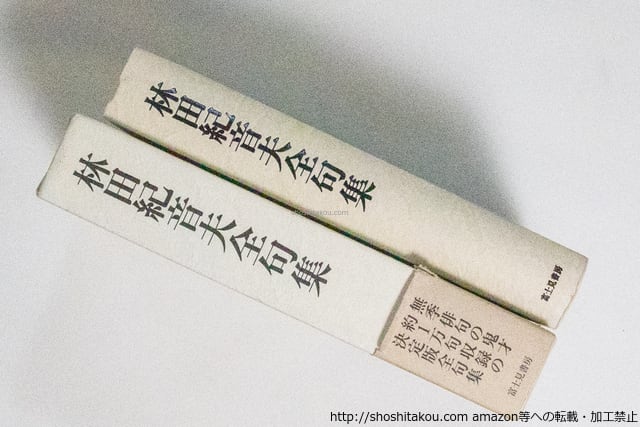 林田紀音夫全句集
富士見書房
林田紀音夫全句集
無季俳句の鬼才
約1万句収録の
決定版全句集
富士見書房
shoshitakou.com
shoshitakou.com
http://shoshitakou.com amazon等への転載・加工禁止